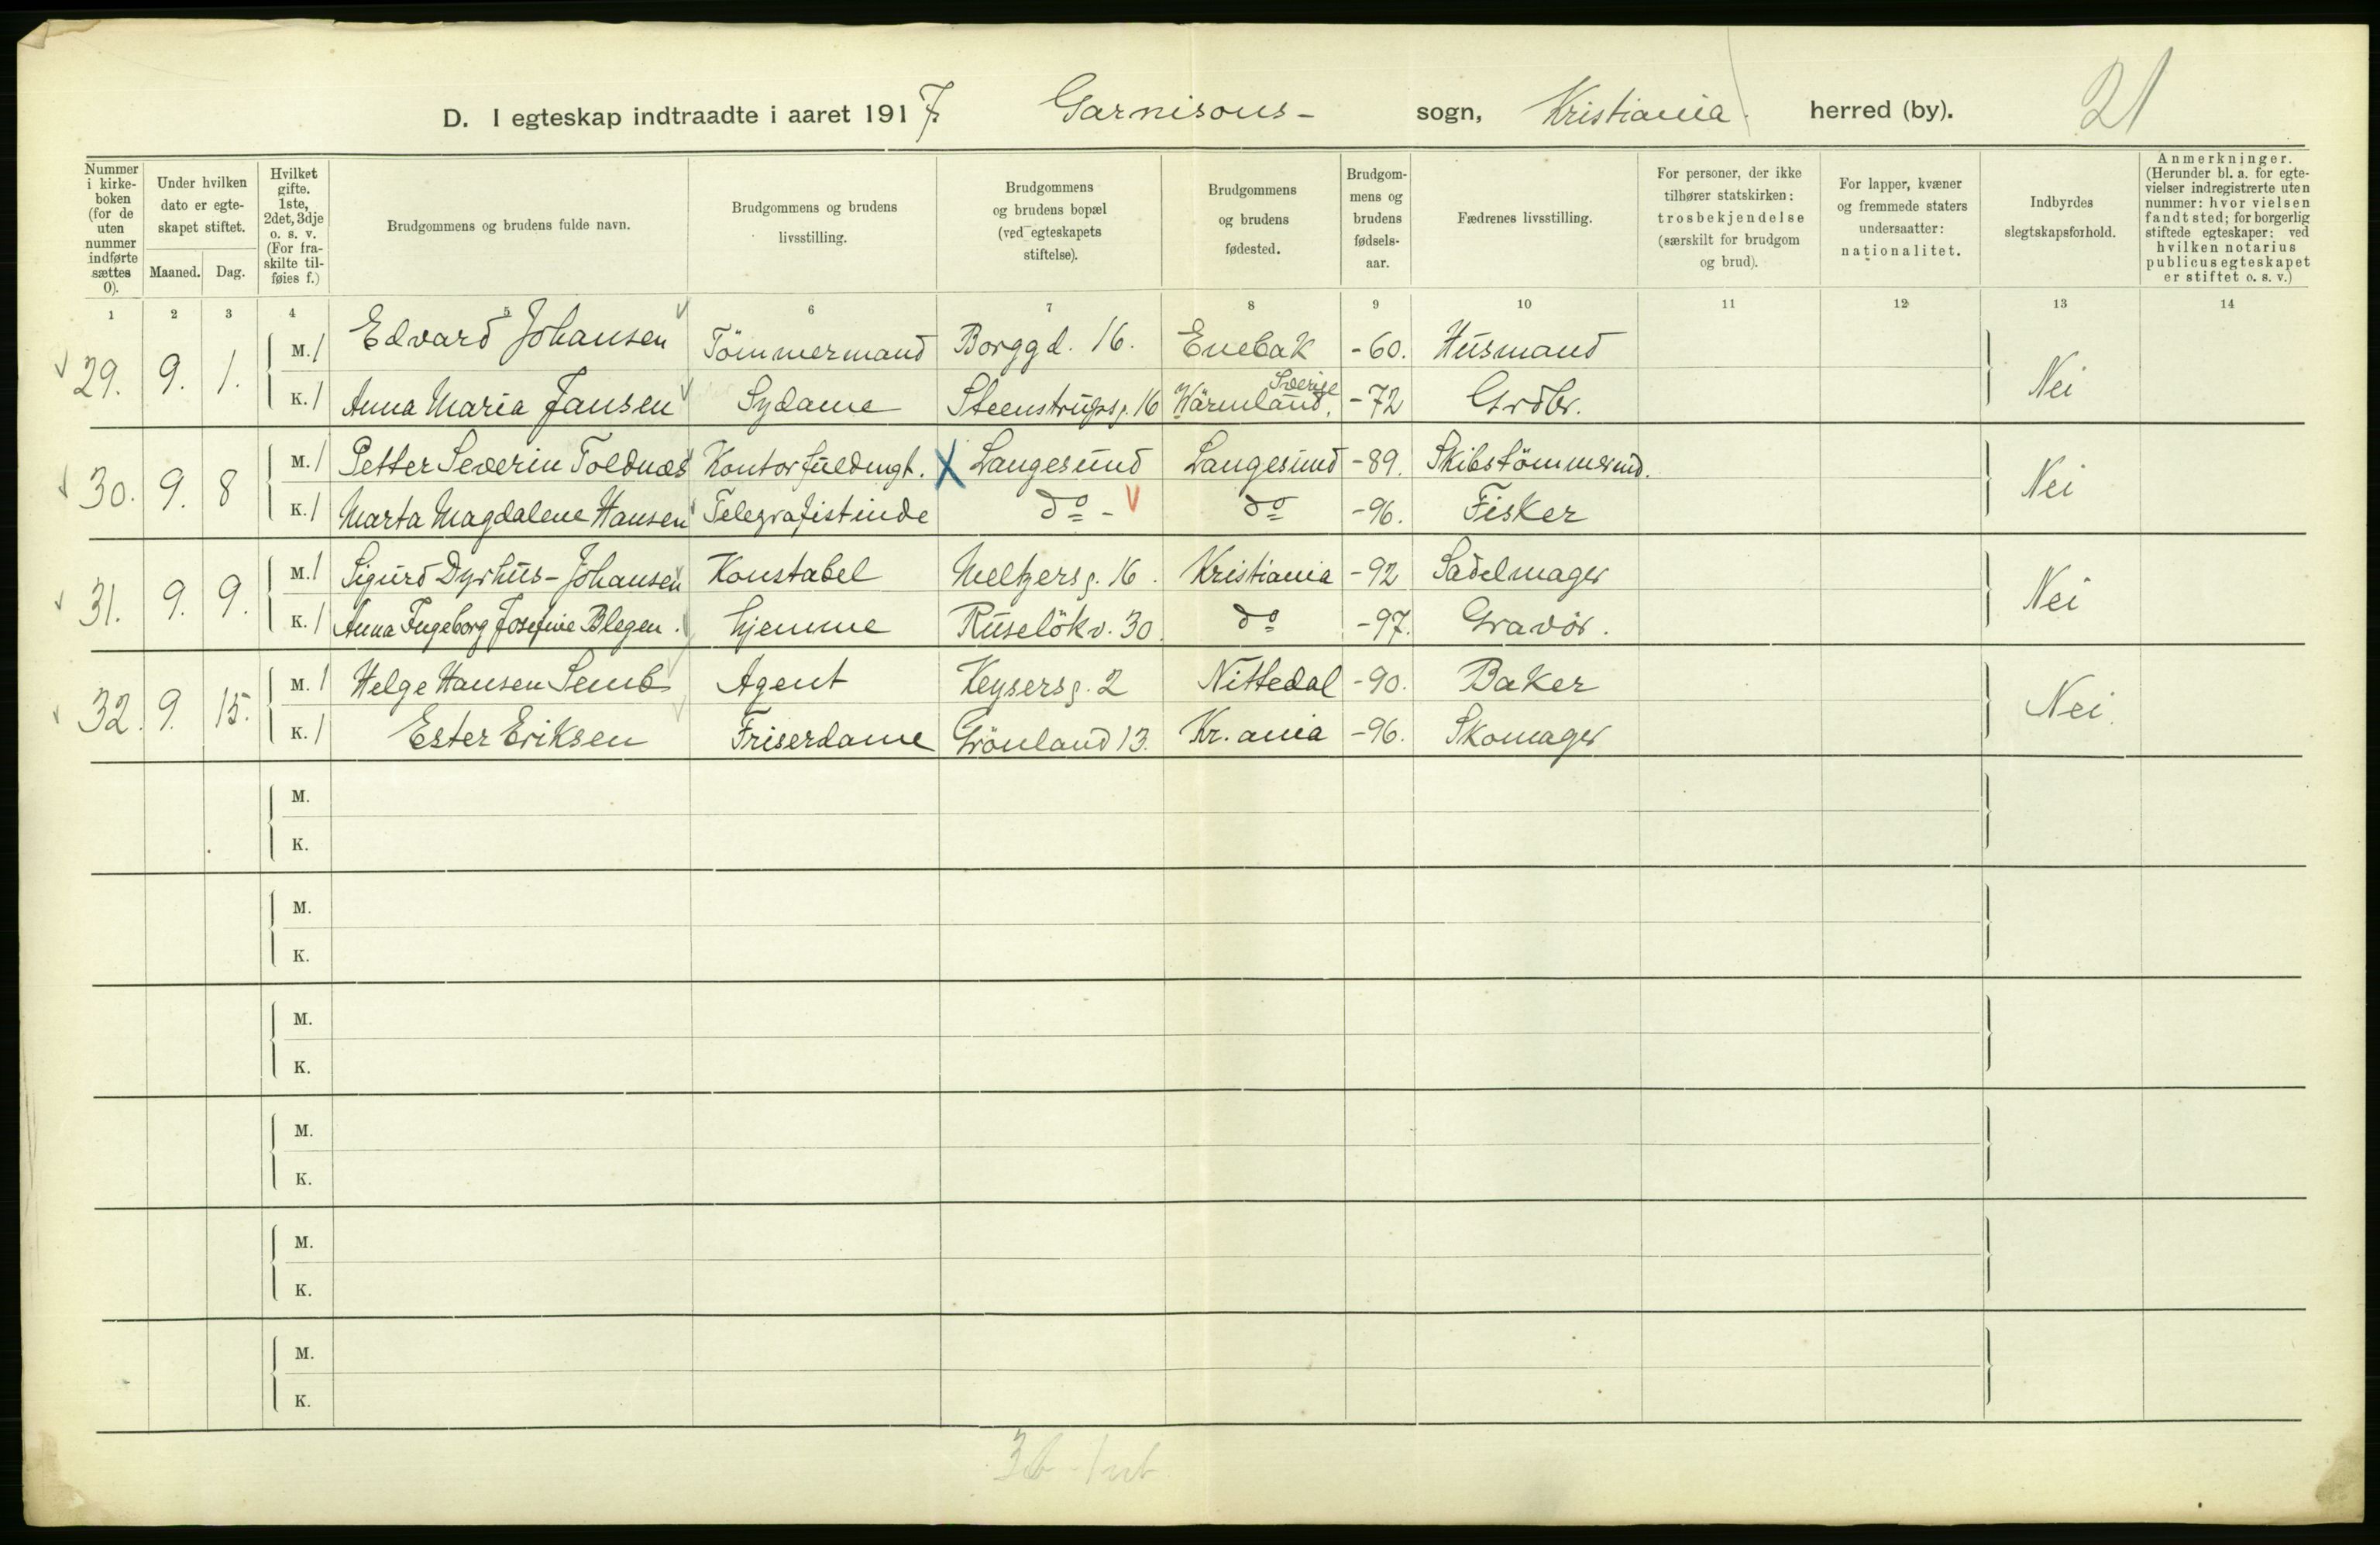 D. I egteskap indtraadte i aaret 1917. Garnisons- sogn, Kristiania. herred (by). 21
Nummer i kirke-boken (for de uten nummer indførte sættes 0).
Under hvilken dato er egte-skapet stiftet.
Maaned. Dag.
Hvilket gifte. 1ste, 2det, 3dje o. s. v. (For fra-skilte til-føies f.)
Brudgommens og brudens fulde navn.
Brudgommens og brudens livsstilling.
Brudgommens og brudens bopæl (ved egteskapets stiftelse).
Brudgommens og brudens fødested.
Brudgom-mens og brudens fødsels-aar.
Fædrenes livsstilling.
For personer, der ikke tilhører statskirken: trosbekjendelse (særskilt for brudgom og brud).
For lapper, kvæner og fremmede staters undersaatter: nationalitet.
Indbyrdes slegtskapsforhold.
Anmerkninger. (Herunder bl. a. for egte-vielser indregistrerte uten nummer: hvor vielsen fandt sted; for borgerlig stiftede egteskaper: ved hvilken notarius publicus egteskapet er stiftet o. s. v.)
1 2 3 4 5 6 7 8 9 10 11 12 13 14
29. 9. 1. M. 1 Edvard Johansen Tömmermand Borggd. 16. Enebak -60. Husmand Nei
K. 1 Anna Maria Jansen Sydame Steenstrupsg. 16 Wärmland, Sverige -72 Grdbr.
30. 9. 8 M. 1 Petter Severin Toldnæs Kontorfuldmgt. X Langesund Langesund -89. Skibstömmermd. Nei
K. 1 Marta Magdalene Hansen Telegrafistinde do - do -96. Fisker
31. 9. 9. M. 1 Sigurd Dyrhus-Johansen Konstabel Meltzersg. 16. Kristiania -92 Sadelmager Nei
K. 1 Anna Ingeborg Josefine Blegen. hjemme Ruselökv. 30. do -97. Gravör.
32. 9. 15. M. 1 Helge Hansen Semb Agent Keysersg. 2 Nittedal -90. Baker Nei.
K. 1 Ester Eriksen Friserdame Grönland 13. Kr.ania -96. Skomager
M.
K.
M.
K.
M.
K.
M.
K.
M.
K.
M.
K.